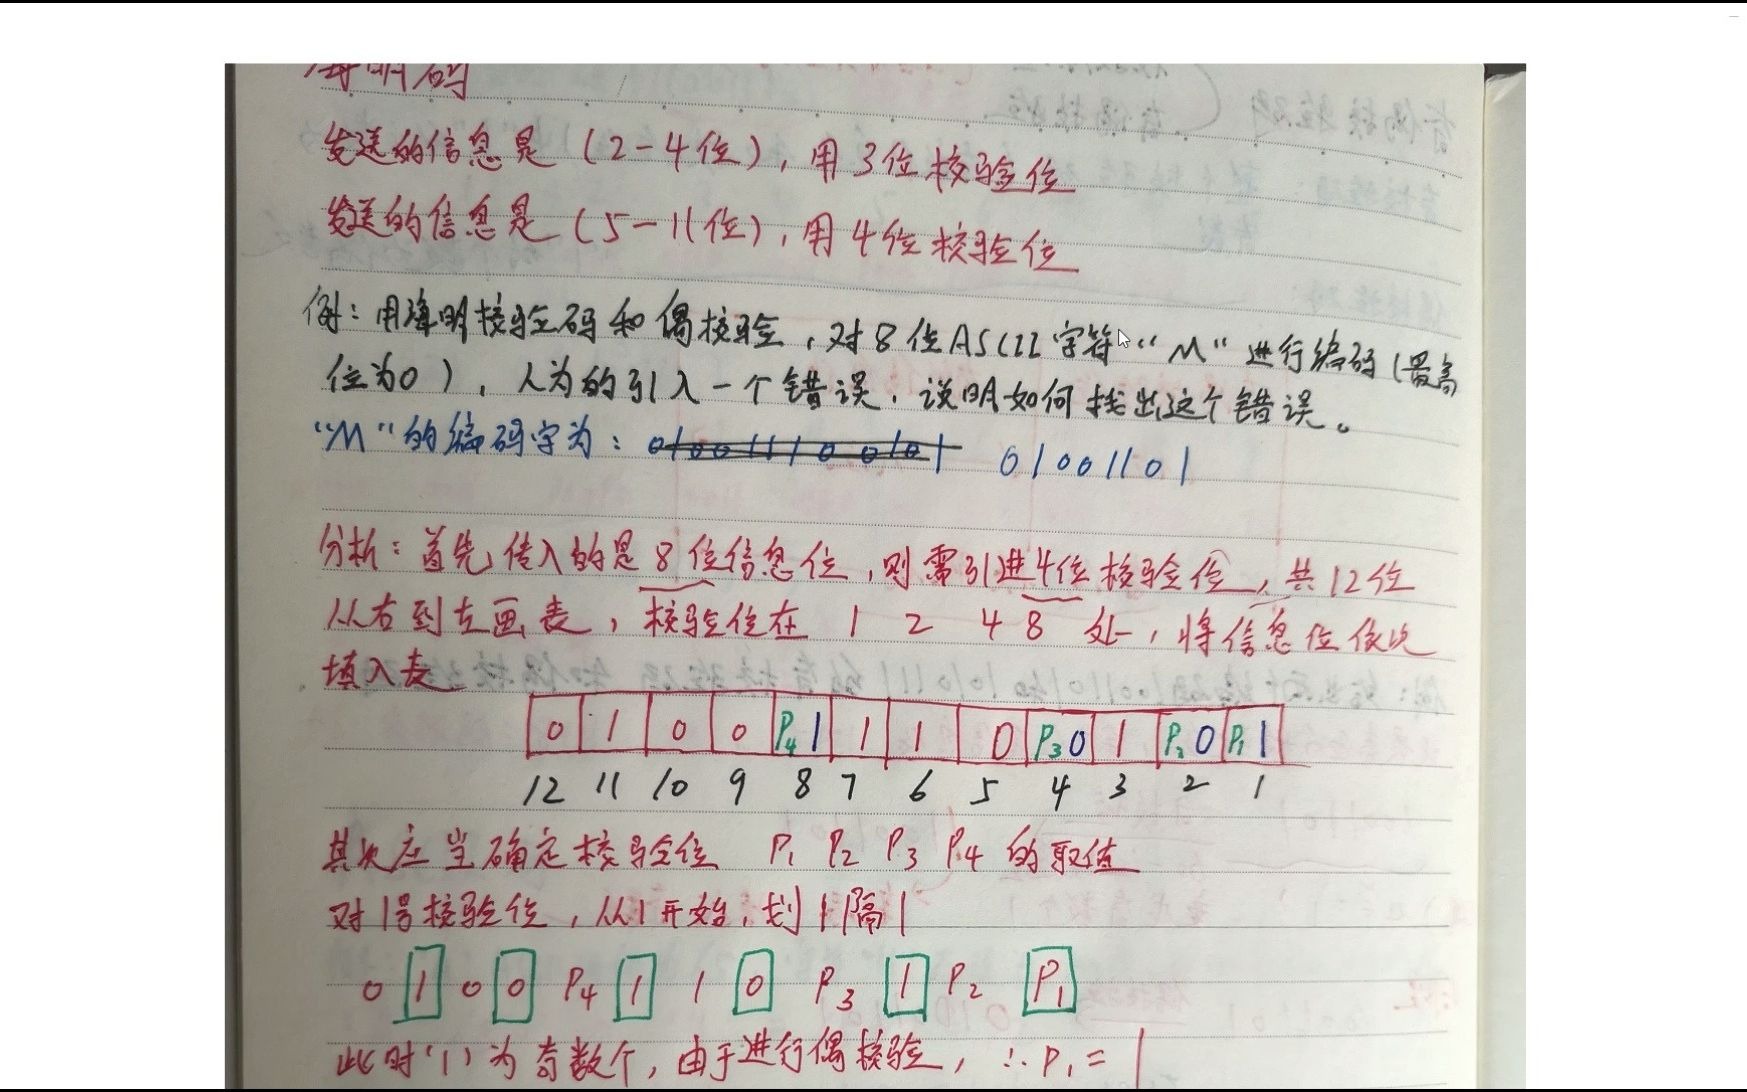 海明码
发送的信息是（2－4位），用3位校验位
发送的信息是（5－11位），用4位校验位
例：用海明校验码和偶校验，对8位ASCII字符“M”进行编码（最高
位为0），人为的引入一个错误，说明如何找出这个错误。
“M”的编码字为：010011100101 01001101
分析：首先，传入的是8位信息位，则需引进4位校验位，共12位
从右到左画表，校验位在 1 2 4 8 处，将信息位依次
填入表
0 1 0 0 P4 1 1 1 0 P3 0 1 P2 0 P1 1
12 11 10 9 8 7 6 5 4 3 2 1
其次应当确定校验位 P1 P2 P3 P4 的取值
对1号校验位，从1开始，划1隔1
0 1 0 0 P4 1 1 0 P3 1 P2 P1
此时‘1’为奇数个，由于进行偶校验，∴P1=1